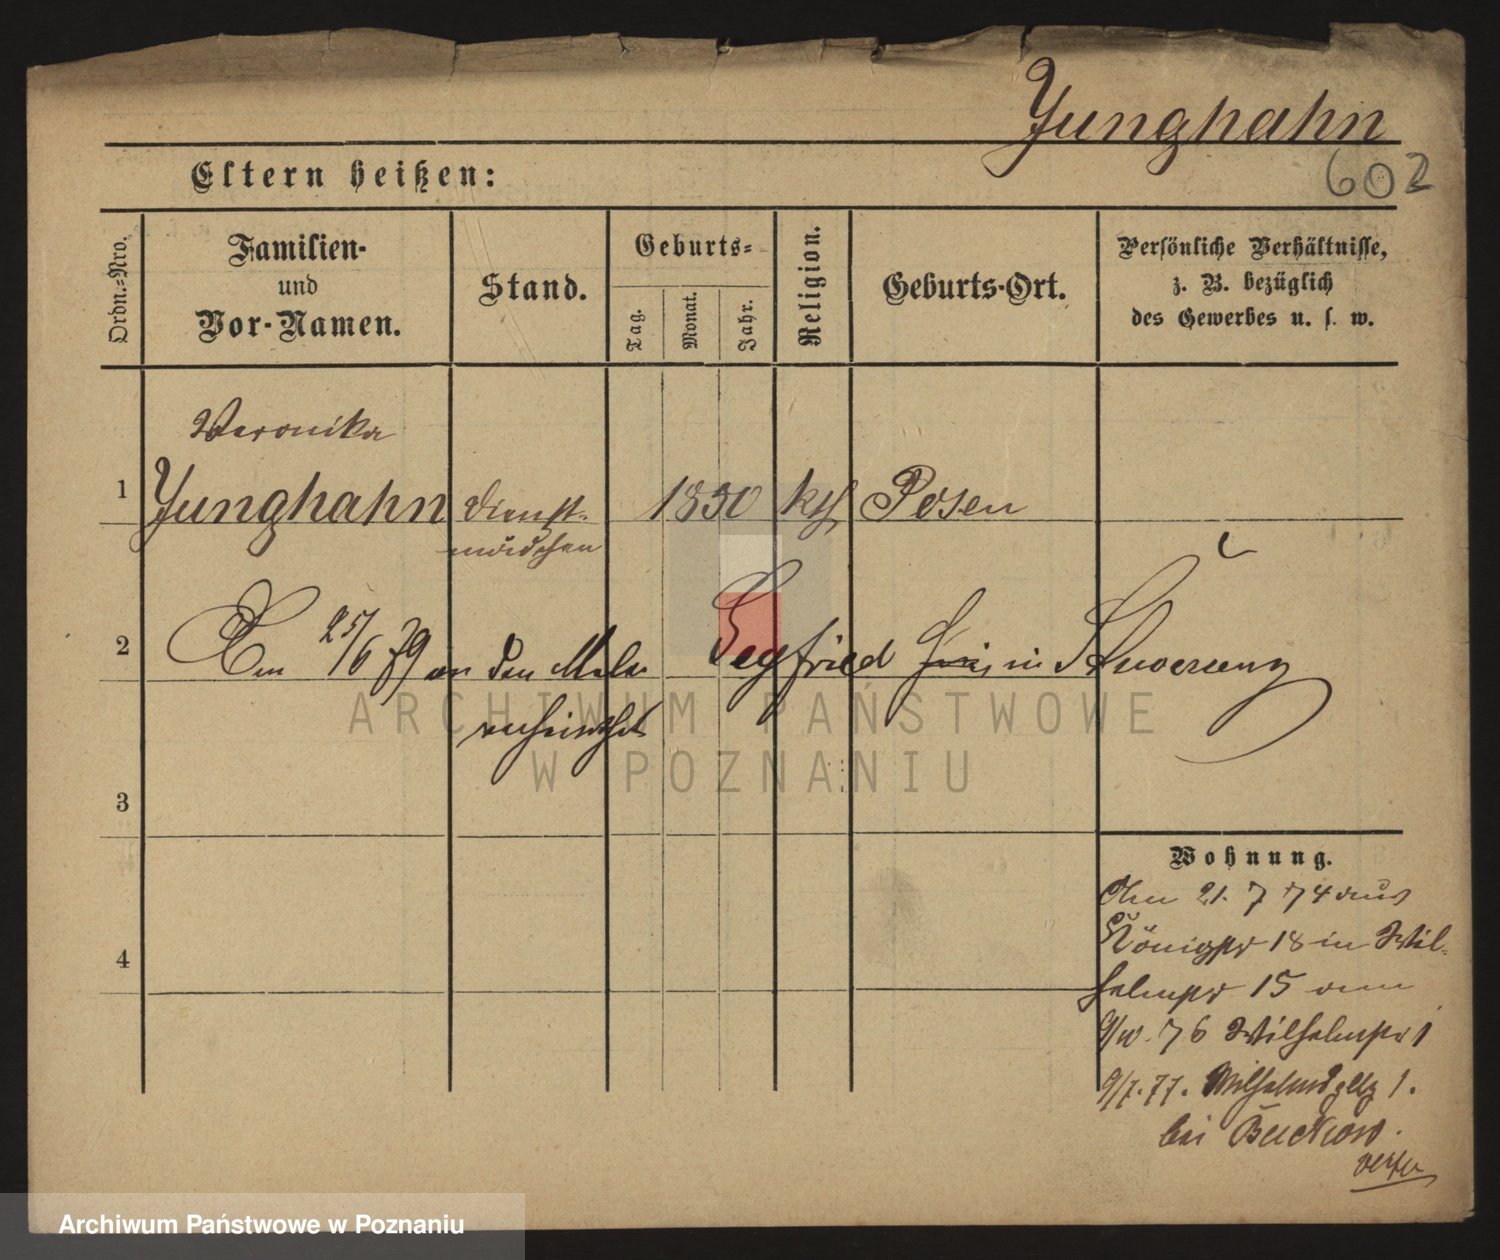 Junghahn
602
Eltern heißen:
Ordn.-Nro.
Familien-
und
Vor-Namen.
Stand.
Geburts-
Tag.
Monat.
Jahr.
Religion.
Geburts-Ort.
Persönliche Verhältnisse,
z. B. bezüglich
des Gewerbes u. s. w.
Veronika
1 Junghahn Dienst- 1850 kth Posen
mädchen
2 Am 25/6 79 an den
Siegfried in
ARCHIWUM PAŃSTWOWE
W POZNANIU
3
Wohnung.
Am 21. 7 74 aus
Königstr 18 in Wil-
4
helmstr 15
76 Wilhelmstr 1
9/7. 77. Wilhelmspltz 1.
bei Buckow.
Archiwum Państwowe w Poznaniu